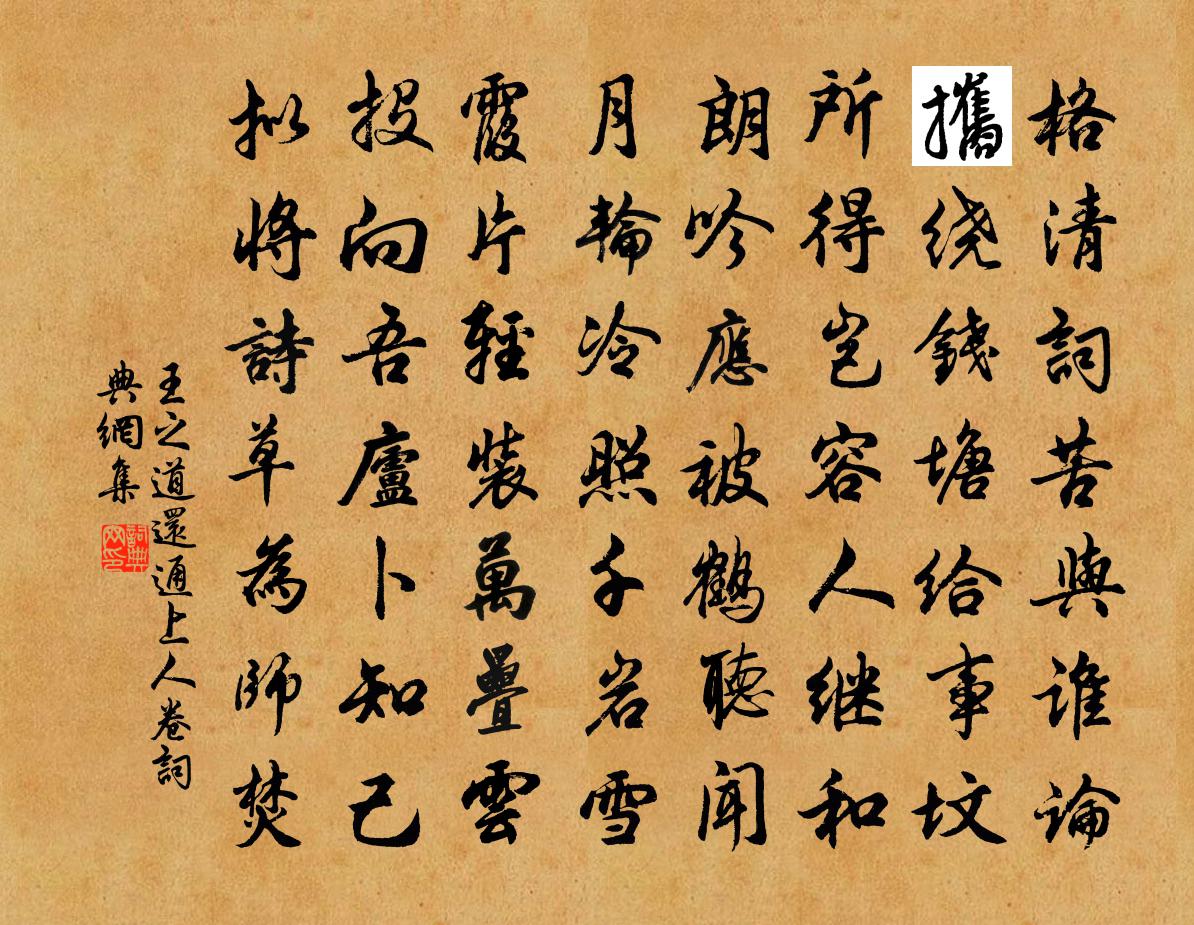 格清詞苦與誰論
攜绕錢塘給事坟
所得岂容人继和
朗吟應被鹤聽聞
月輪冷照千岩雪
霞片輕裝萬疊雲
投向吾廬卜知己
拟將詩草為師焚
王之道還通上人卷詞
典網集
詞典网印